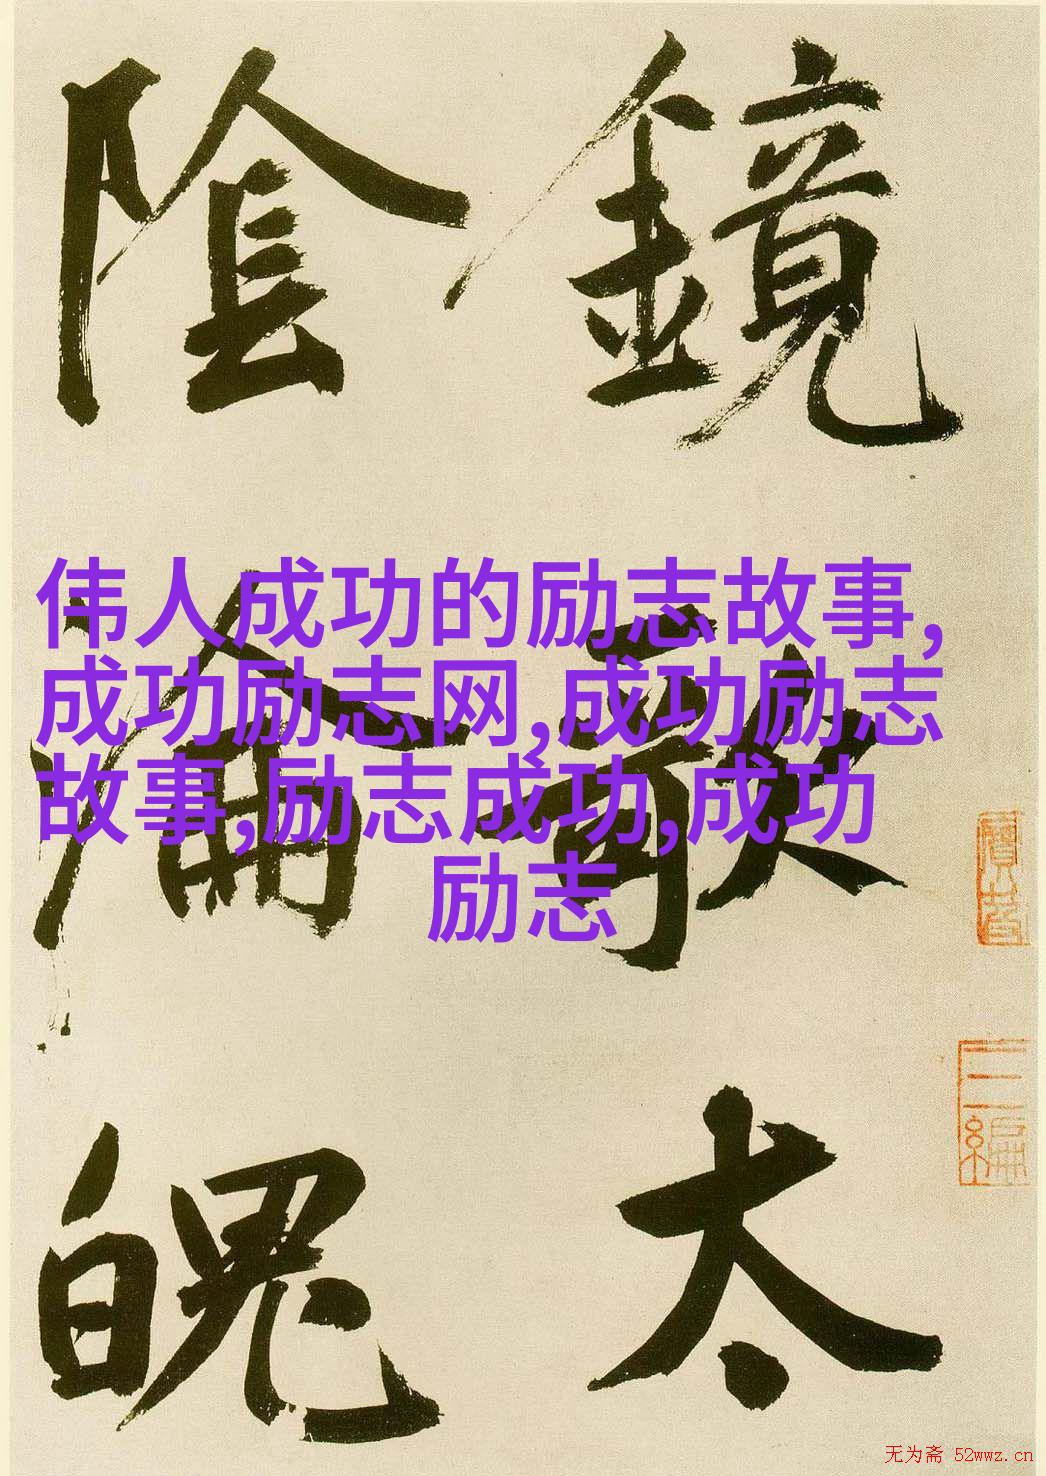 鏡歌太
陰淪魄
伟人成功的励志故事,
成功励志网,成功励志
故事,励志成功,成功
励志
无为斋 52wwz.cn